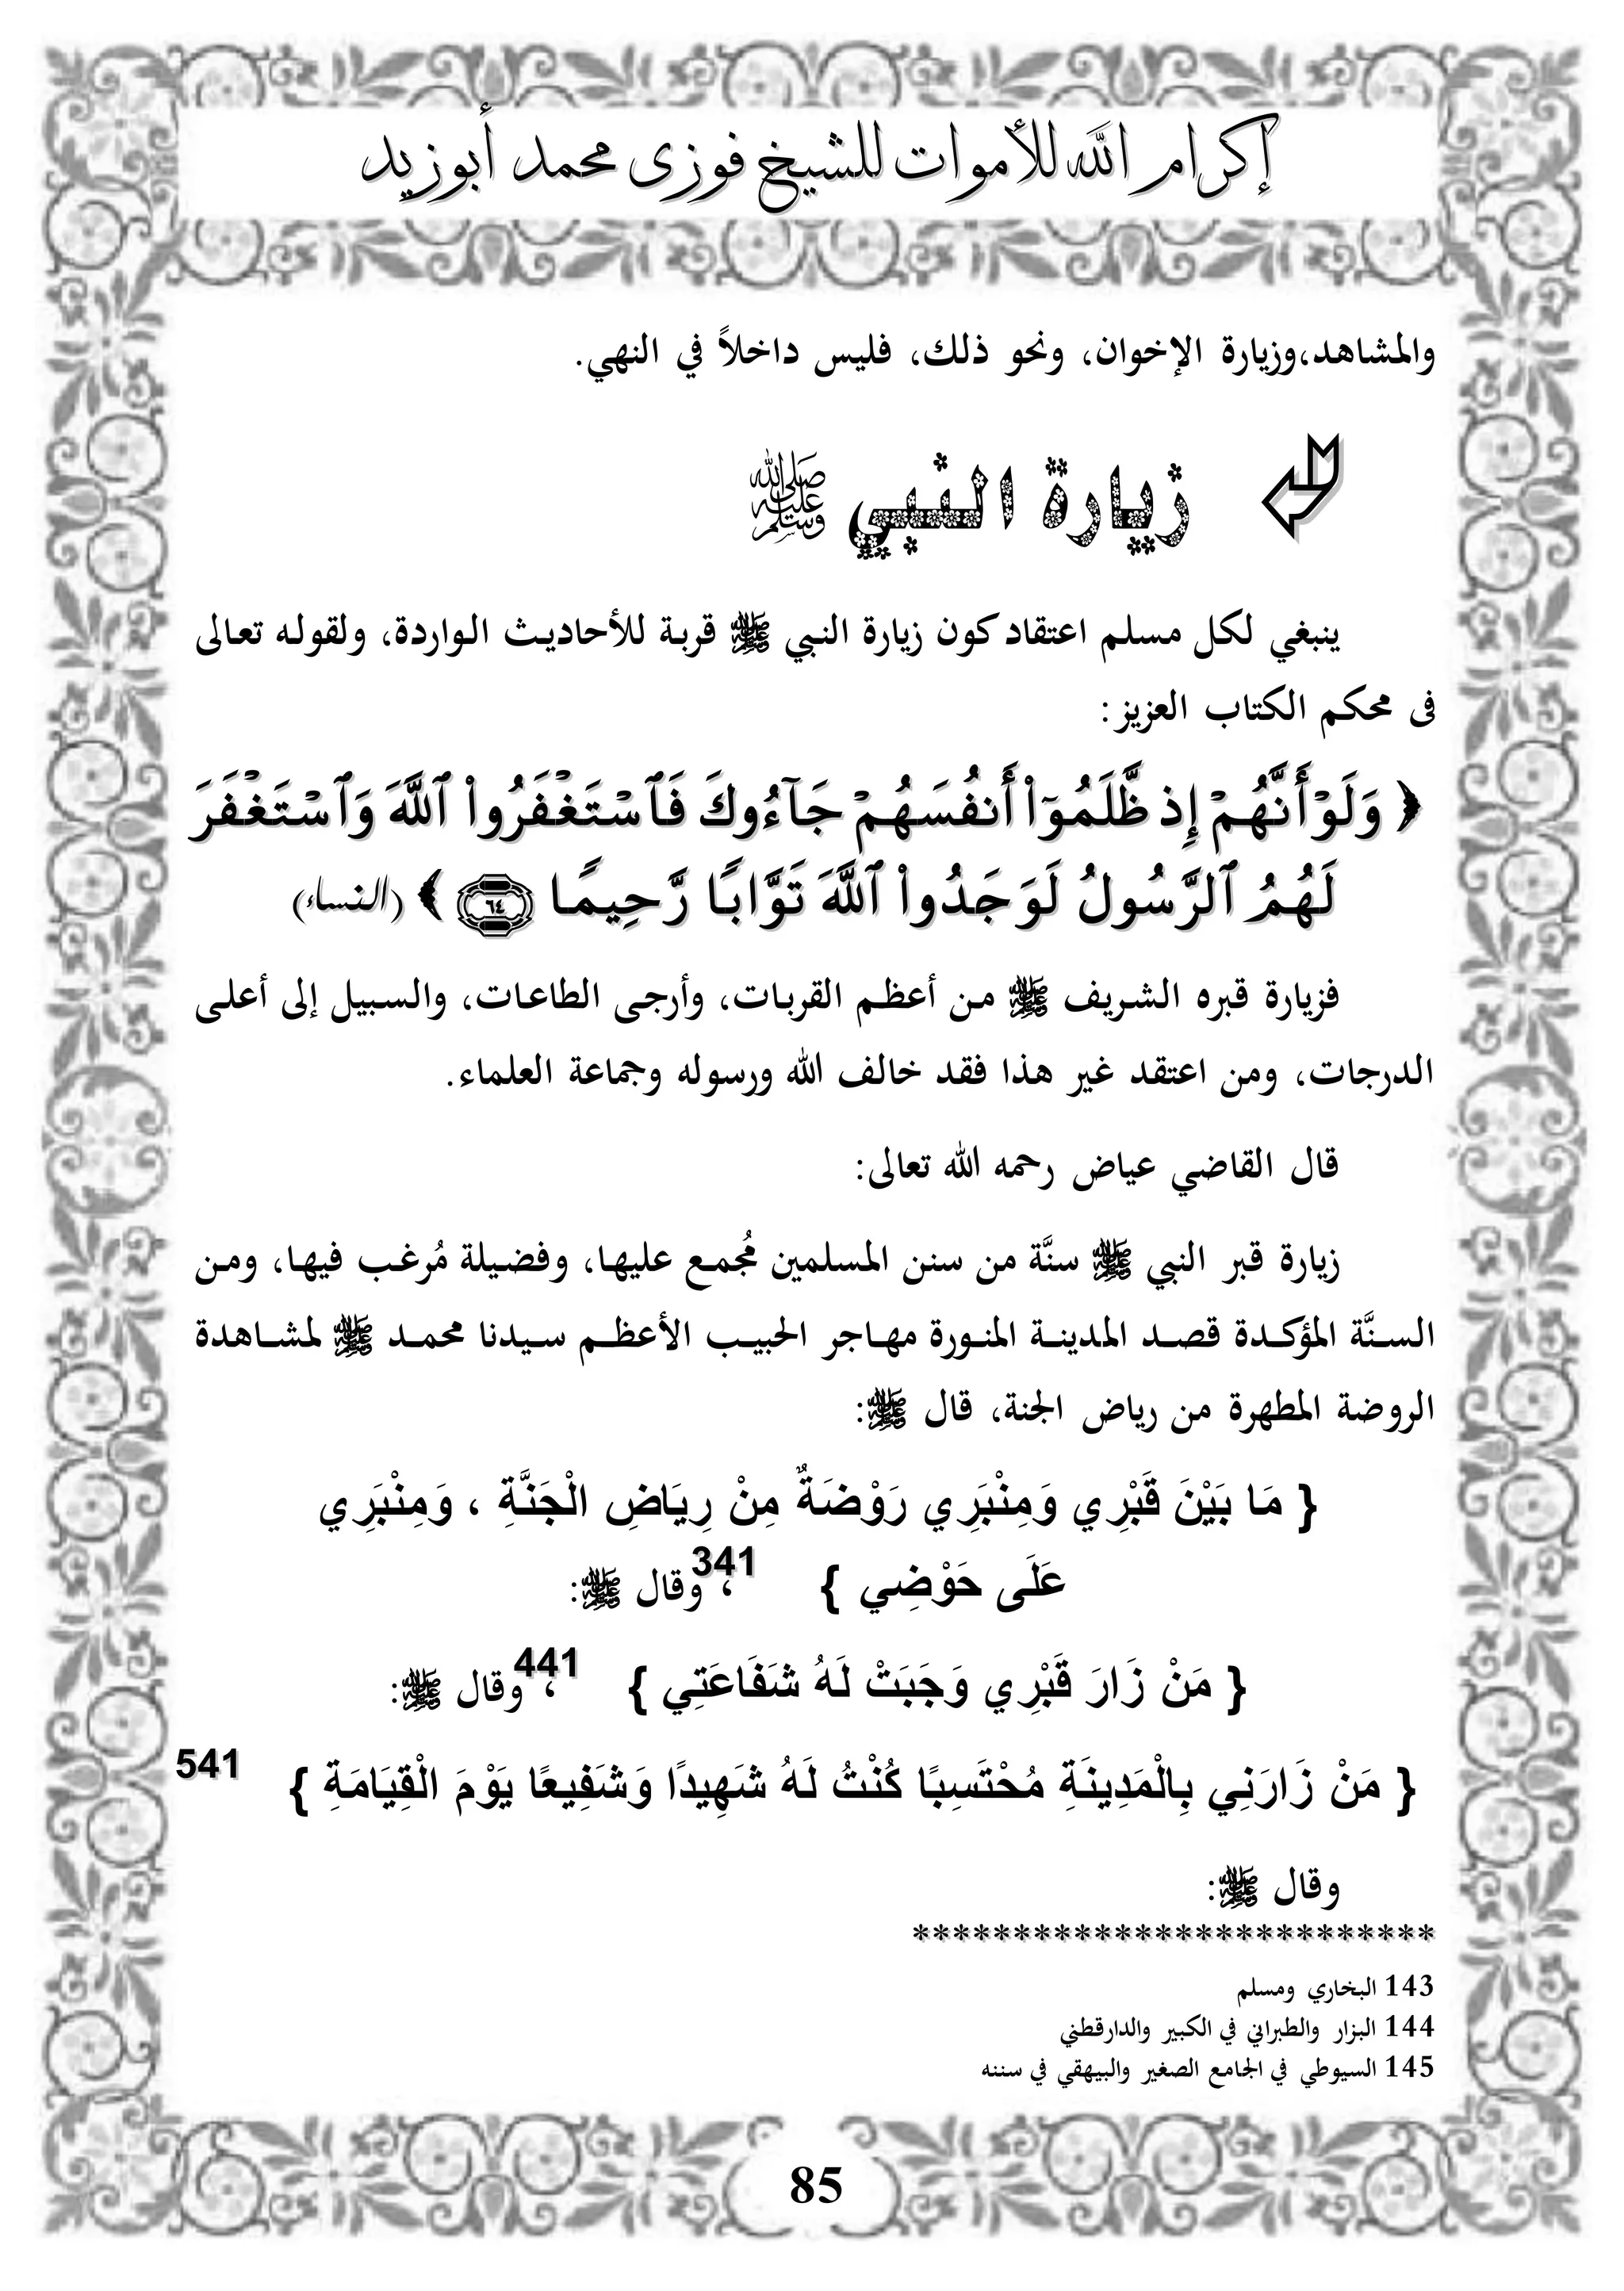 إكرام الله للأموات للشيخ فوزى محمد أبوزيد
والمشاهد،وزيارة الإخوان، ونحو ذلك، فليس داخلاً في النهي.
زيارة النبي ﷺ
ينبغي لكل مسلم اعتقاد كون زيارة النبي ﷺ قربة للأحاديث الواردة، ولقوله تعالى
فى محكم الكتاب العزيز:
﴿ وَلَوْ أَنَّهُمْ إِذ ظَّلَمُوٓا۟ أَنفُسَهُمْ جَآءُوكَ فَٱسْتَغْفَرُوا۟ ٱللَّهَ وَٱسْتَغْفَرَ
لَهُمُ ٱلرَّسُولُ لَوَجَدُوا۟ ٱللَّهَ تَوَّابًا رَّحِيمًا ٦٤ ﴾ (النساء)
فزيارة قبره الشريف ﷺ من أعظم القربات، وأرجى الطاعات، والسبيل إلى أعلى
الدرجات، ومن اعتقد غير هذا فقد خالف الله ورسوله وجماعة العلماء.
قال القاضي عياض رحمه الله تعالى:
زيارة قبر النبي ﷺ سنَّة من سنن المسلمين مُجمع عليها، وفضيلة مُرغب فيها، ومن
السنَّة المؤكدة قصد المدينة المنورة مهاجر الحبيب الأعظم سيدنا محمد ﷺ لمشاهدة
الروضة المطهرة من رياض الجنة، قال ﷺ:
{ مَا بَيْنَ قَبْرِي وَمِنْبَرِي رَوْضَةٌ مِنْ رِيَاضِ الْجَنَّةِ ، وَمِنْبَرِي
عَلَى حَوْضِي } 341، وقال ﷺ:
{ مَنْ زَارَ قَبْرِي وَجَبَتْ لَهُ شَفَاعَتِي } 441، وقال ﷺ:
{ مَنْ زَارَنِي بِالْمَدِينَةِ مُحْتَسِبًا كُنْتُ لَهُ شَهِيدًا وَشَفِيعًا يَوْمَ الْقِيَامَةِ } 541
وقال ﷺ:
**************************
143 البخاري ومسلم
144 البزار والطبراني في الكبير والدارقطني
145 السيوطي في الجامع الصغير والبيهقي في سننه
85